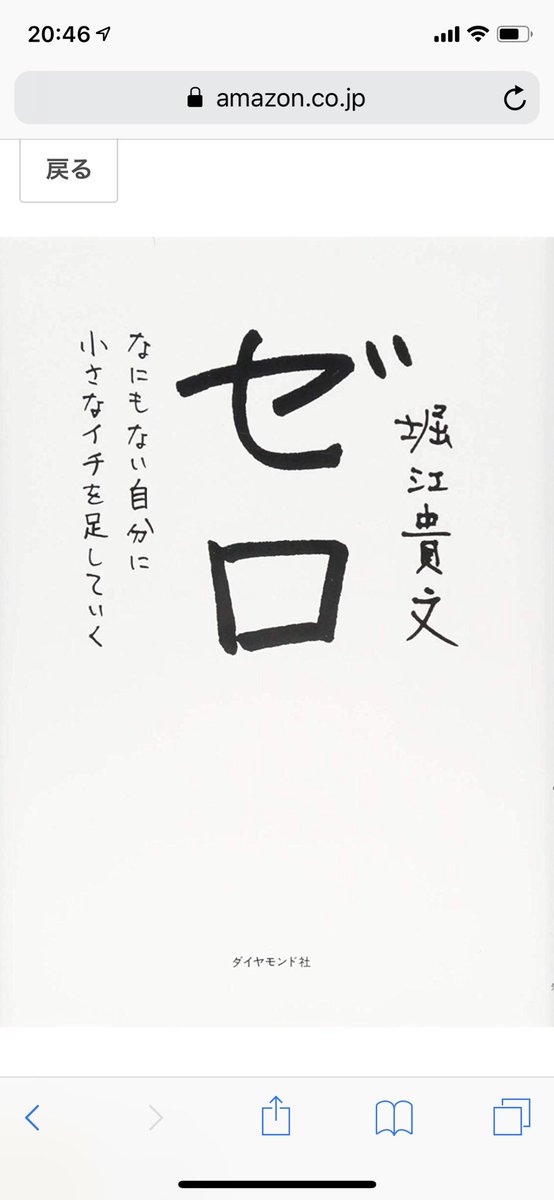 20:46
amazon.co.jp
戻る
堀江貴文
ゼロ
なにもない自分に
小さなイチを足していく
ダイヤモンド社